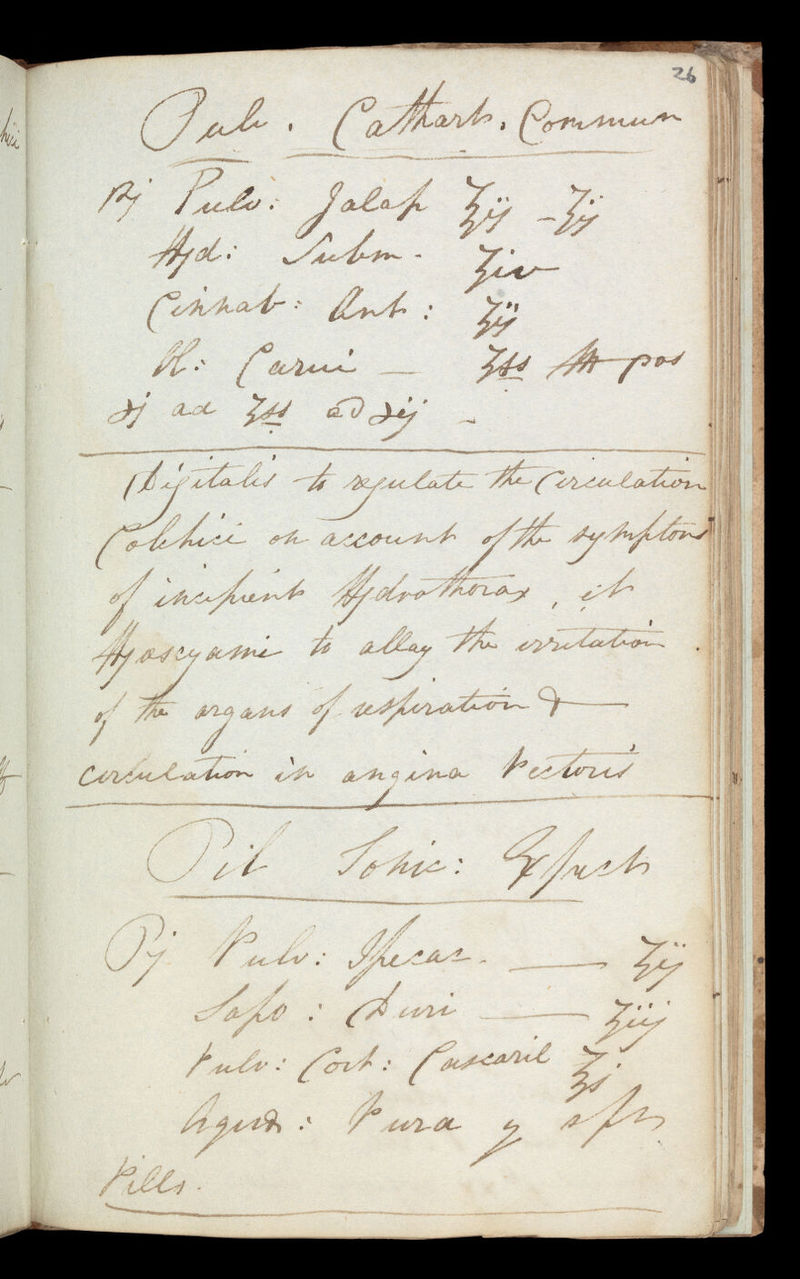 26
Pulv. Cathart. Commun
Rj Pulv: Jalap ʒij - ʒij
Hyd: Subm. ʒiv
Cinnab: Ant: ʒij
Ol: Carui — ʒss pos
ad ʒss
Digitalis to regulate the Circulation
Colchici on account of the symptoms
of incipient Hydrothorax, et
Hyoscyami to allay the irritation
of the organs of respiration &
circulation in angina Pectoris
Pil Tonic: Expect
Rj Pulv: Ipecac. — ʒij
Sapo: Duri — ʒiij
Pulv: Cort: Cascaril
Aqua: Pura
Pills.